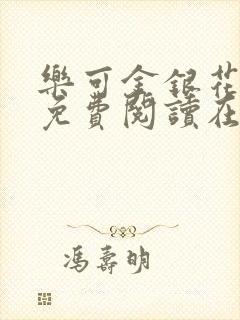 樂可金銀花
免費閱讀在
馮壽明